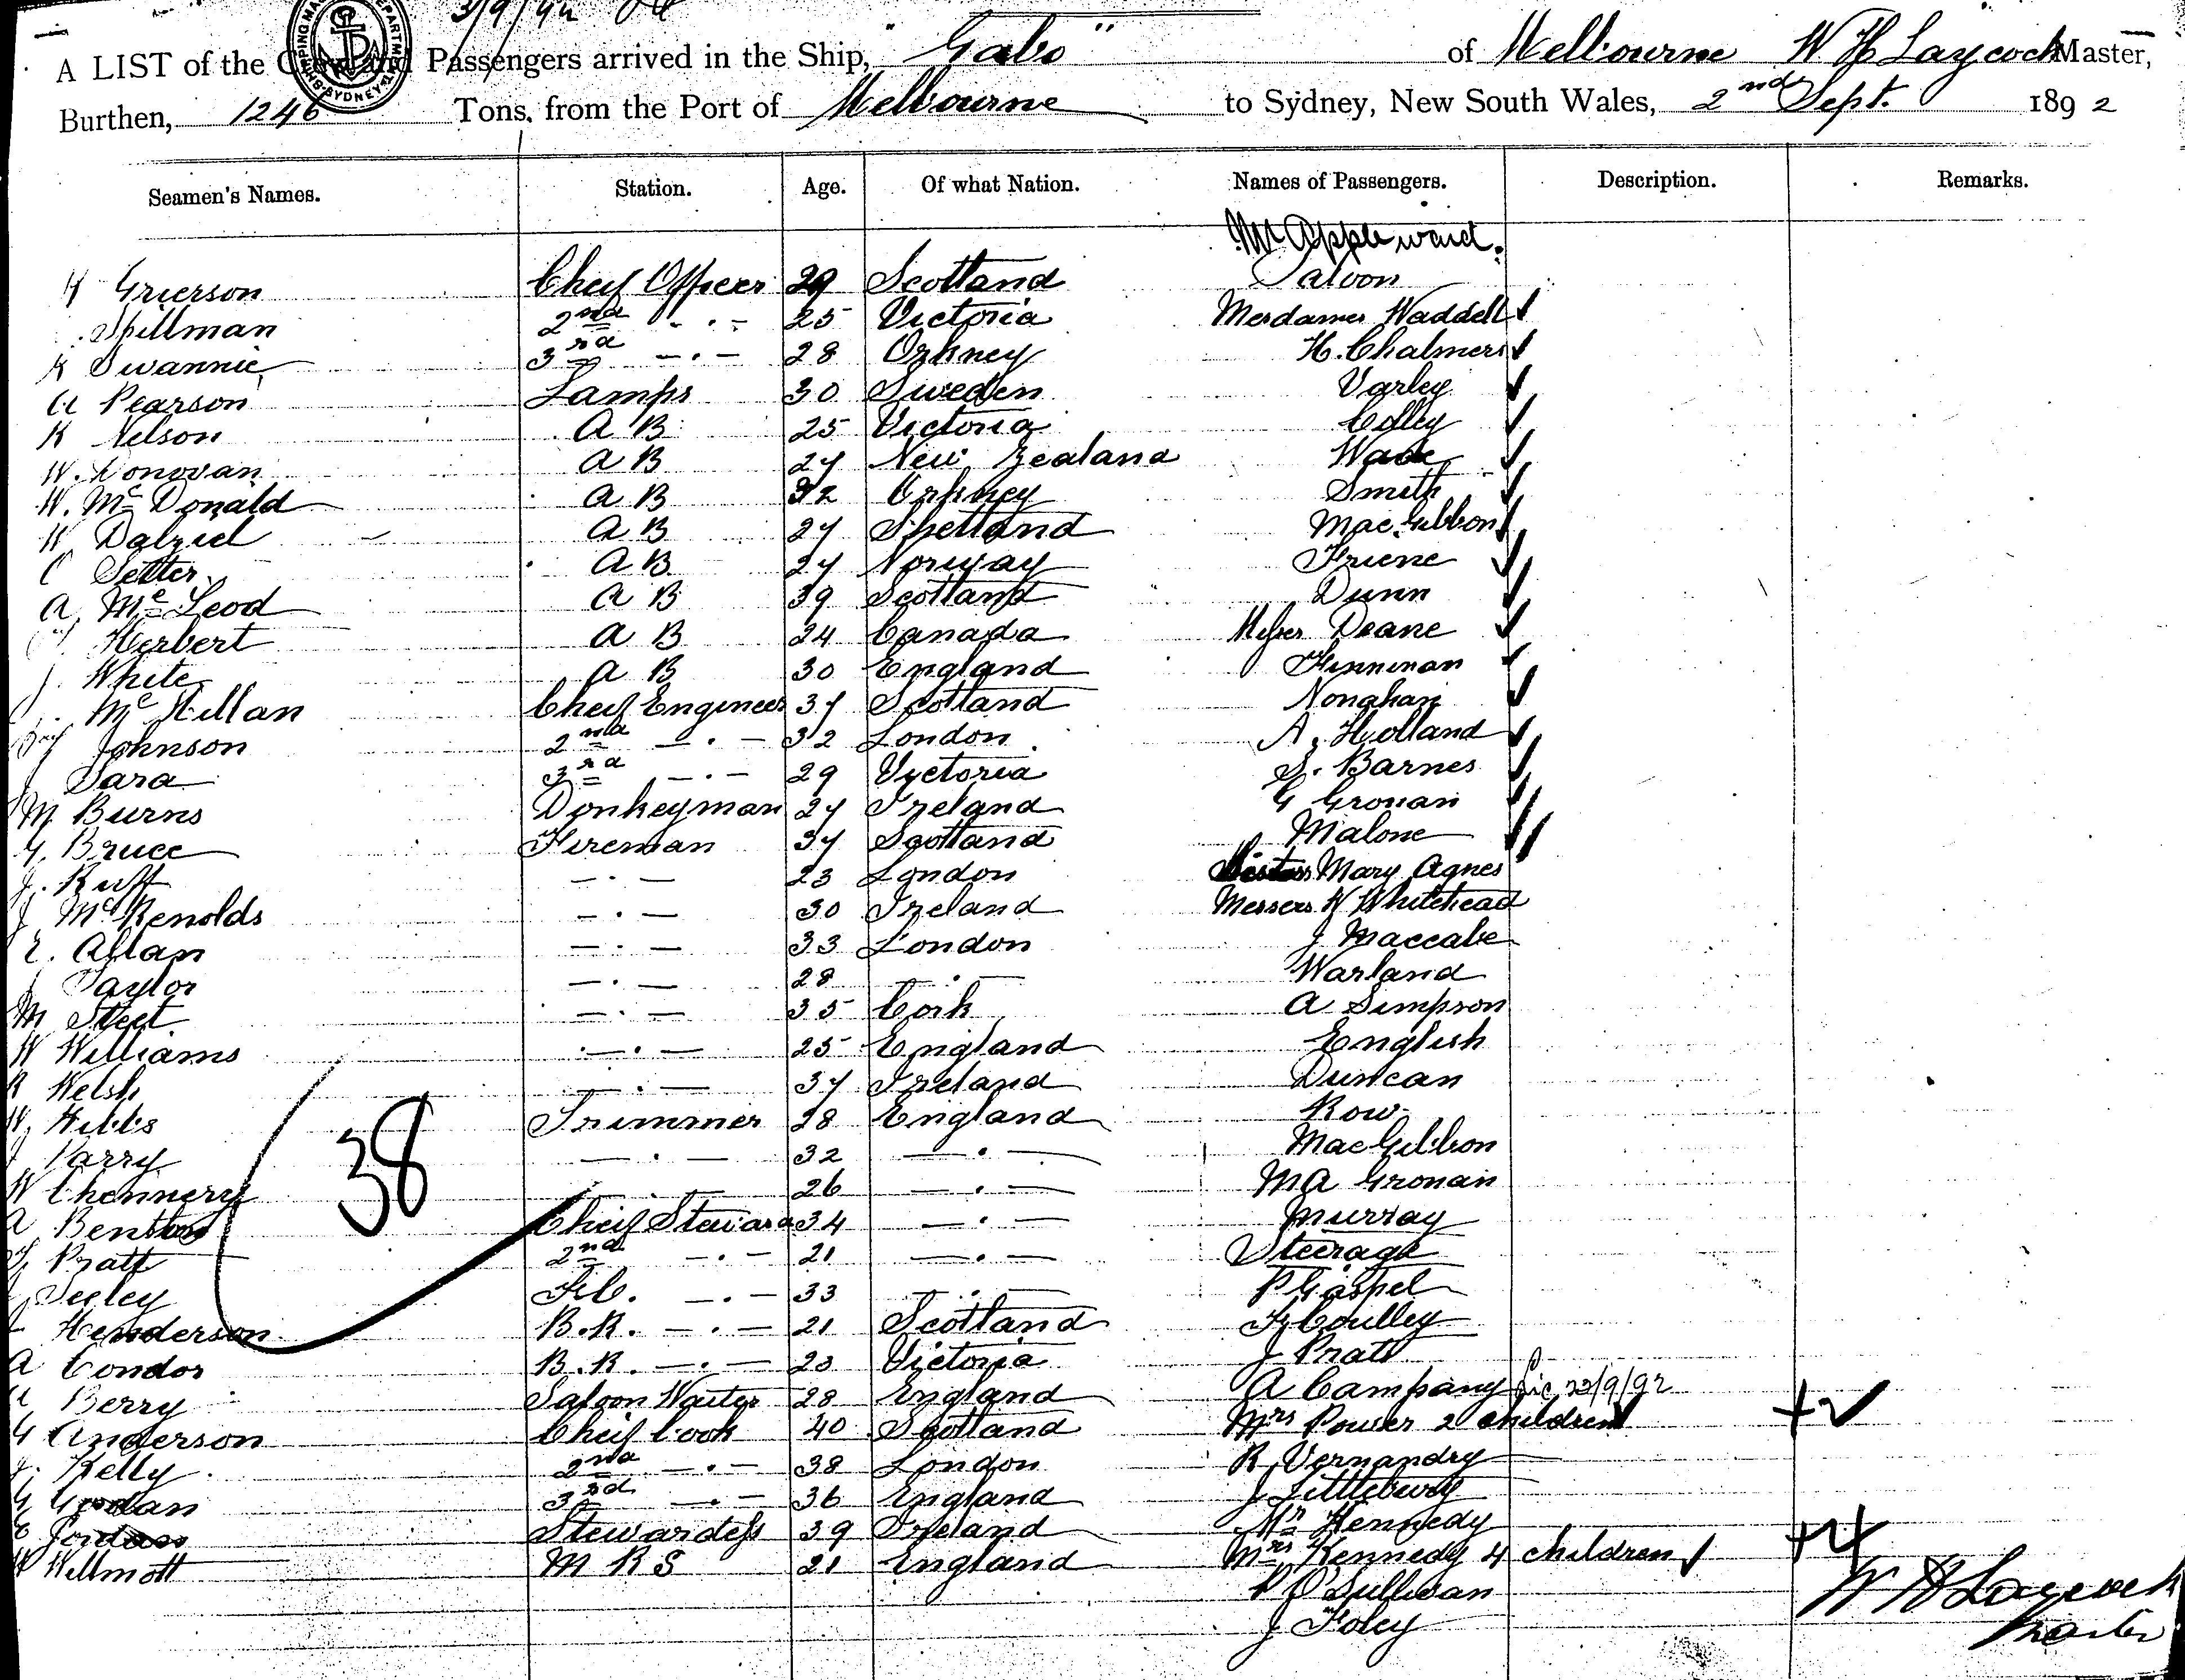 3/9/92
A LIST of the Crew and Passengers arrived in the Ship, "Gabo" of Melbourne W H Laycock Master,
Burthen, 1246 Tons, from the Port of Melbourne to Sydney, New South Wales, 2nd Sept. 1892
Seamen's Names. Station. Age. Of what Nation. Names of Passengers. Description. Remarks.
Mr Appleward.
H Grierson Cheif Officer 29 Scotland Saloon
Spillman 2nd -.- 25 Victoria Mesdames Waddell
Swannie 3rd -.- 28 Orkney H. Chalmers
A Pearson Lamps 30 Sweden Varley
K Nelson A B 25 Victoria Colley
W. Donovan A B 27 New Zealand Wade
W. McDonald A B 32 Orkney Smith
W Dalziel A B 27 Shetland MacGibbon
C Setter A B 27 Norway Friene
A. McLeod A B 39 Scotland Dunn
Herbert A B 24 Canada Misses Deane
J. White A B 30 England Finninan
McMillan Cheif Engineer 37 Scotland Nonahan
Johnson 2nd -.- 32 London A. Holland
J Sara 3rd -.- 29 Victoria S. Barnes
M Burns Donkeyman 27 Ireland G Gronan
G. Bruce Fireman 37 Scotland Malone
J. Ruff -.- 23 London Mary Agnes
J McRenolds -.- 30 Ireland Messers H Whitehead
E. Allan -.- 33 London J Maccabe
J Taylor -.- 28 -.- Warland
M Steet -.- 35 Cork A Simpson
W Williams -.- 25 England English
R Welsh -.- 37 Ireland Duncan
W. Hibbs Trimmer 28 England Row
J Parry -.- 32 -.- MacGibbon
W Chennery -.- 26 -.- M A Gronan
A Benson Cheif Steward 34 -.- Murray
Pratt 2nd -.- 21 -.- Steerage
J Seeley F.C. -.- 33 -.- P Gaspel
38
Henderson B.R. -.- 21 Scotland F Coulley
A Condor B.R. -.- 23 Victoria J Pratt
A Berry Saloon Waiter 28 England A Campany 22/9/92
G Anderson Cheif Cook 40 Scotland Mrs Power 2 children +2
J. Kelly 2nd -.- 38 London R. Vernandry
G 3rd -.- 36 England J Littlebury
E Jordan Stewardess 39 Ireland Mr Kennedy
W Wellmott M R S 21 England Mrs Kennedy 4 children +4
P O'Sullivan W H Laycock
J Foley Master